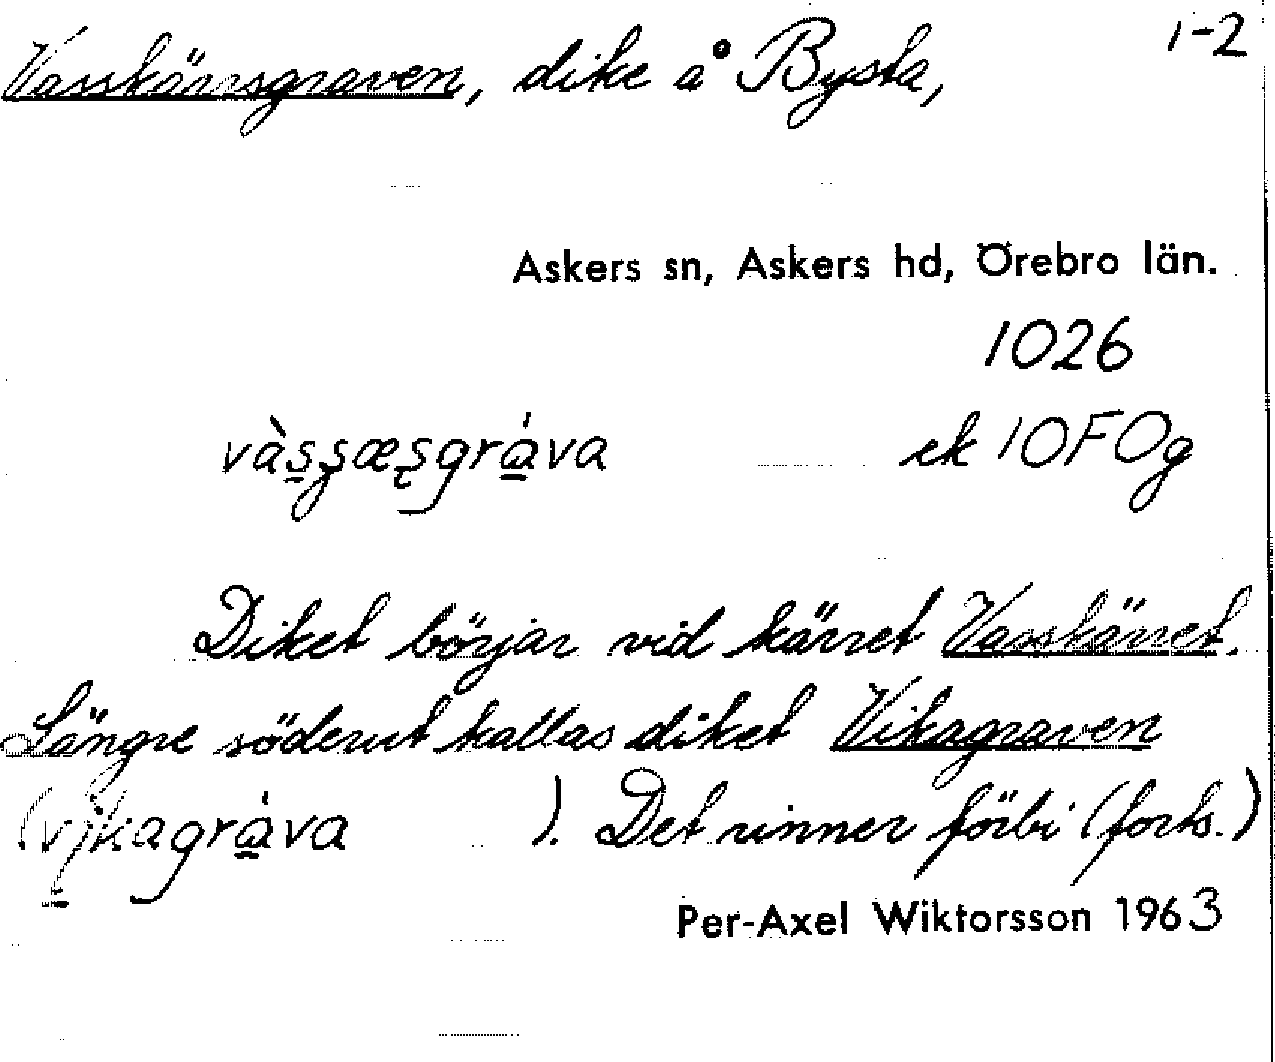 1-2
Vasskärrsgraven, dike å Bysta,
Askers sn, Askers hd, Örebro län.
1026
vàs̱ʂæʂgrá̱va ek 10F0g
Diket börjar vid kärret Vasskärret.
Längre söderut kallas diket Vikagraven
(vi̱kagrá̱va ). Det rinner förbi (forts.)
Per-Axel Wiktorsson 1963